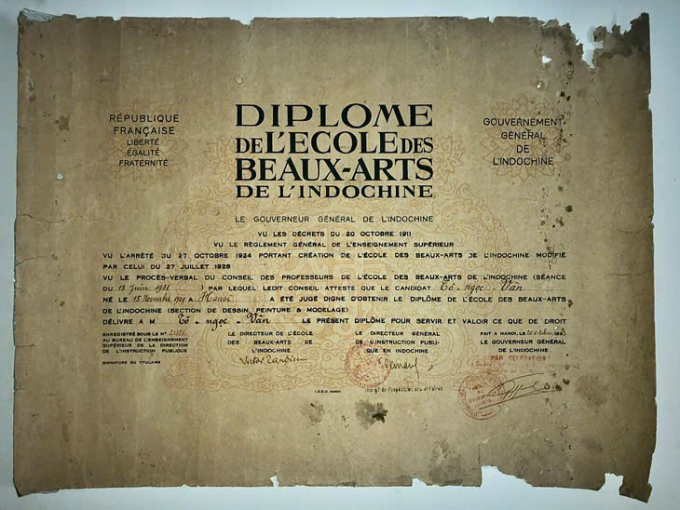 RÉPUBLIQUE
FRANÇAISE
LIBERTÉ
ÉGALITÉ
FRATERNITÉ
DIPLOME
DE L'ECOLE DES
BEAUX-ARTS
DE L'INDOCHINE
GOUVERNEMENT
GÉNÉRAL
DE
L'INDOCHINE
LE GOUVERNEUR GÉNÉRAL DE L'INDOCHINE
VU LES DÉCRETS DU 20 OCTOBRE 1911
VU LE RÈGLEMENT GÉNÉRAL DE L'ENSEIGNEMENT SUPÉRIEUR
VU L'ARRÊTÉ DU 27 OCTOBRE 1924 PORTANT CRÉATION DE L'ÉCOLE DES BEAUX-ARTS DE L'INDOCHINE MODIFIÉ
PAR CELUI DU 27 JUILLET 1928
VU LE PROCÈS-VERBAL DU CONSEIL DES PROFESSEURS DE L'ÉCOLE DES BEAUX-ARTS DE L'INDOCHINE (SÉANCE
DU 13 Juin 1931 ) PAR LEQUEL LEDIT CONSEIL ATTESTE QUE LE CANDIDAT Tô-ngọc-Vân
NÉ LE 15 Novembre 1909 A Hanoi A ÉTÉ JUGÉ DIGNE D'OBTENIR LE DIPLÔME DE L'ÉCOLE DES BEAUX-ARTS
DE L'INDOCHINE (SECTION DE DESSIN, PEINTURE & MODELAGE)
DÉLIVRE A M Tô-ngọc-Vân LE PRÉSENT DIPLÔME POUR SERVIR ET VALOIR CE QUE DE DROIT
ENREGISTRÉ SOUS LE N°
AU BUREAU DE L'ENSEIGNEMENT
SUPÉRIEUR DE LA DIRECTION
DE L'INSTRUCTION PUBLIQUE
SIGNATURE DU TITULAIRE
LE DIRECTEUR DE L'ÉCOLE
DES BEAUX-ARTS DE
L'INDOCHINE
Victor Tardieu
LE DIRECTEUR GÉNÉRAL
DE L'INSTRUCTION PUBLI-
QUE EN INDOCHINE
FAIT A HANOI, LE
LE GOUVERNEUR GÉNÉRAL
DE L'INDOCHINE
PAR DÉLÉGATION